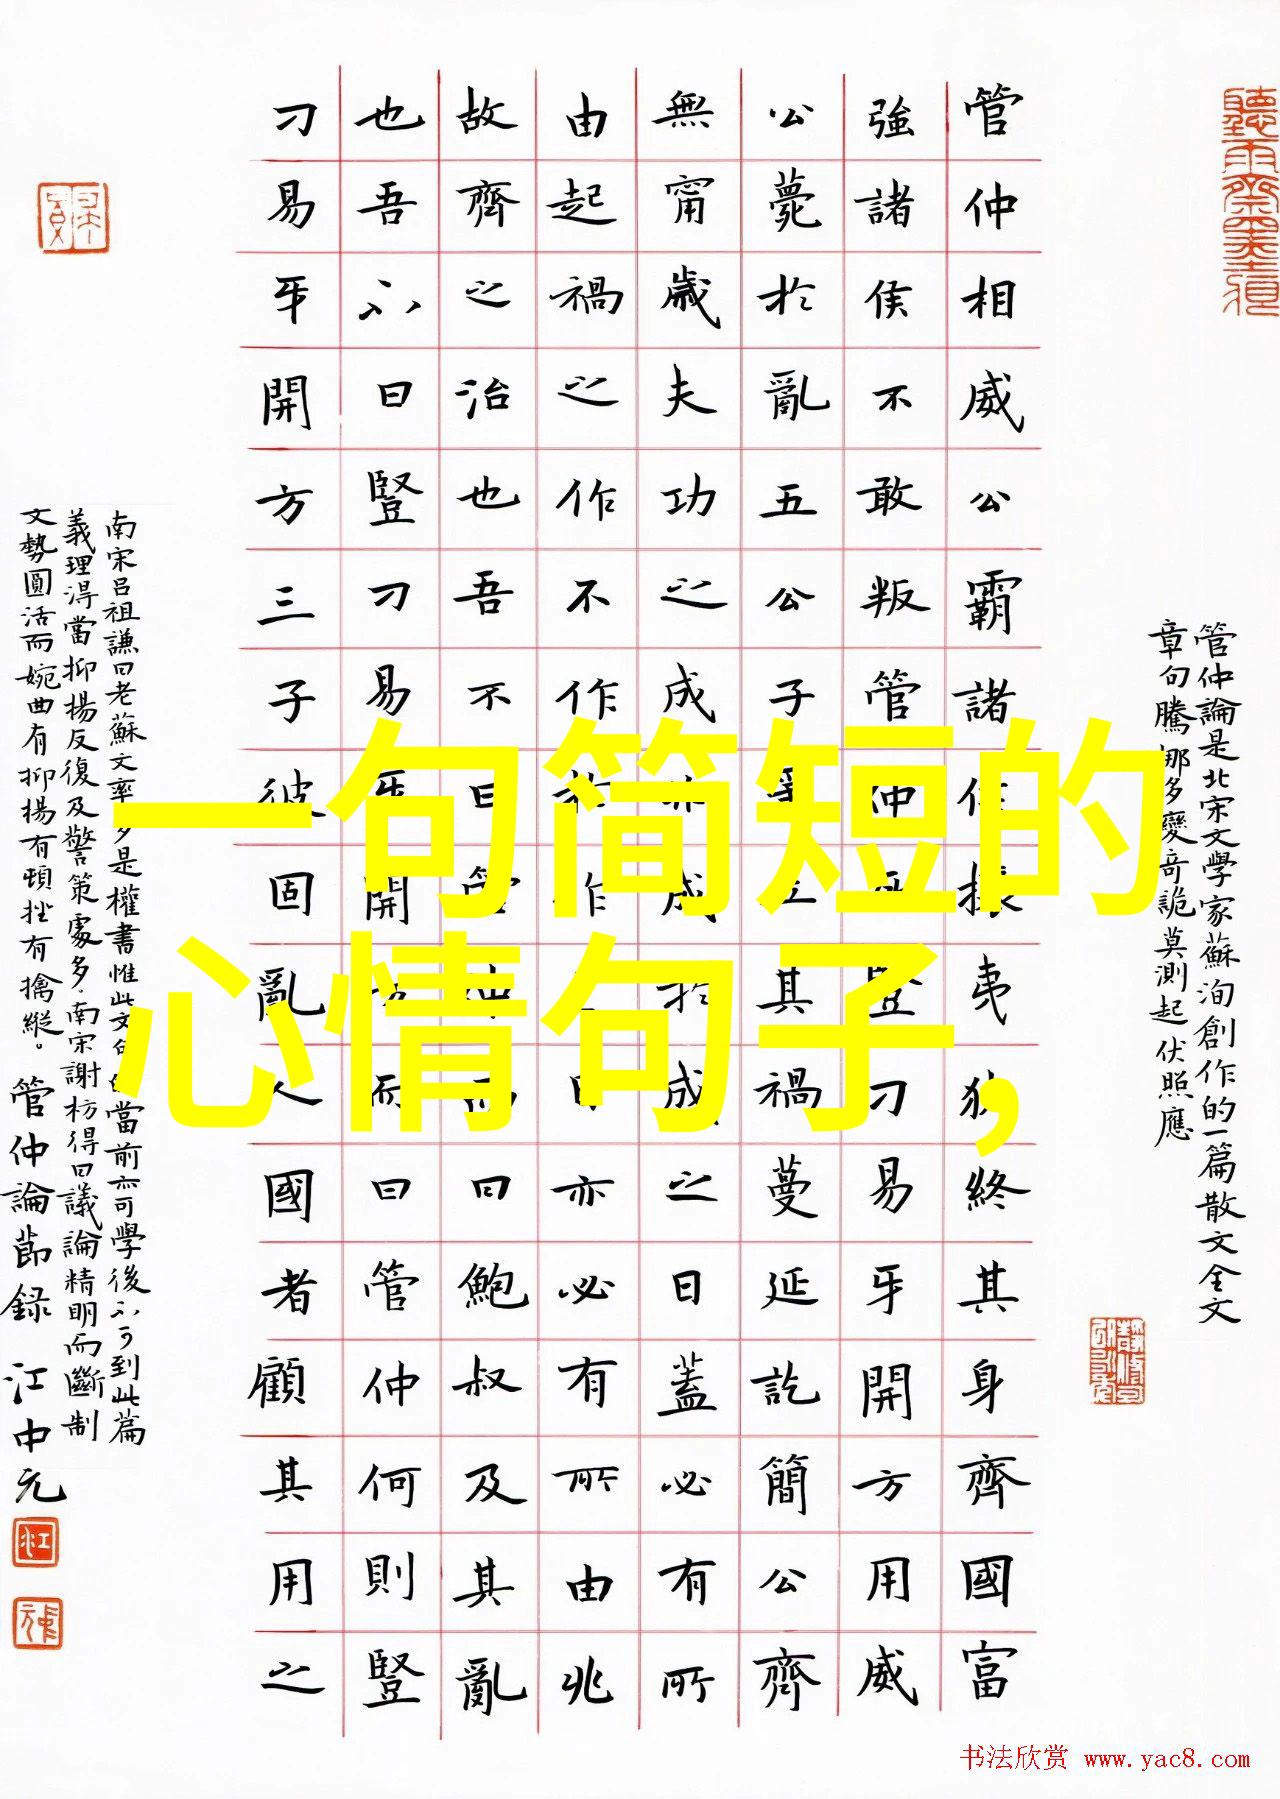 管仲論是北宋文學家蘇洵創作的一篇散文全文
章句騰挪多變奇詭莫測起伏照應
管仲相威公霸諸侯攘夷狄終其身齊國富
強諸侯不敢叛管仲死豎刁易牙開方用威
公薨於亂五公子爭立其禍蔓延訖簡公齊
無甯歲夫功之成非成於成之日蓋必有所
由起禍之作不作於作之日亦必有所由兆
故齊之治也吾不曰管仲而曰鮑叔及其亂
也吾不曰豎刁易牙開方而曰管仲何則豎
刁易牙開方三子彼固亂人國者顧其用之
南宋呂祖謙曰老蘇文率多是權書惟此文句的當前亦可學後不可到此篇
義理得當抑揚反復及警策處多．南宋謝枋得曰議論精明而斷制
文勢圓活而婉曲有抑揚有頓挫有擒縱。管仲論節録 江中元
一句简短的
心情句子，
书法欣赏 www.yac8.com